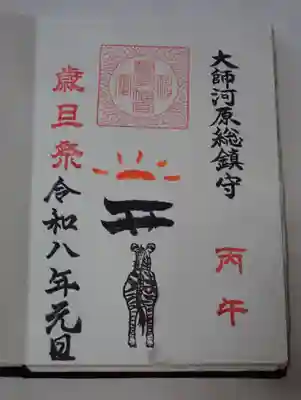 大師河原総鎮守
丙午
歳旦祭
令和八年元日